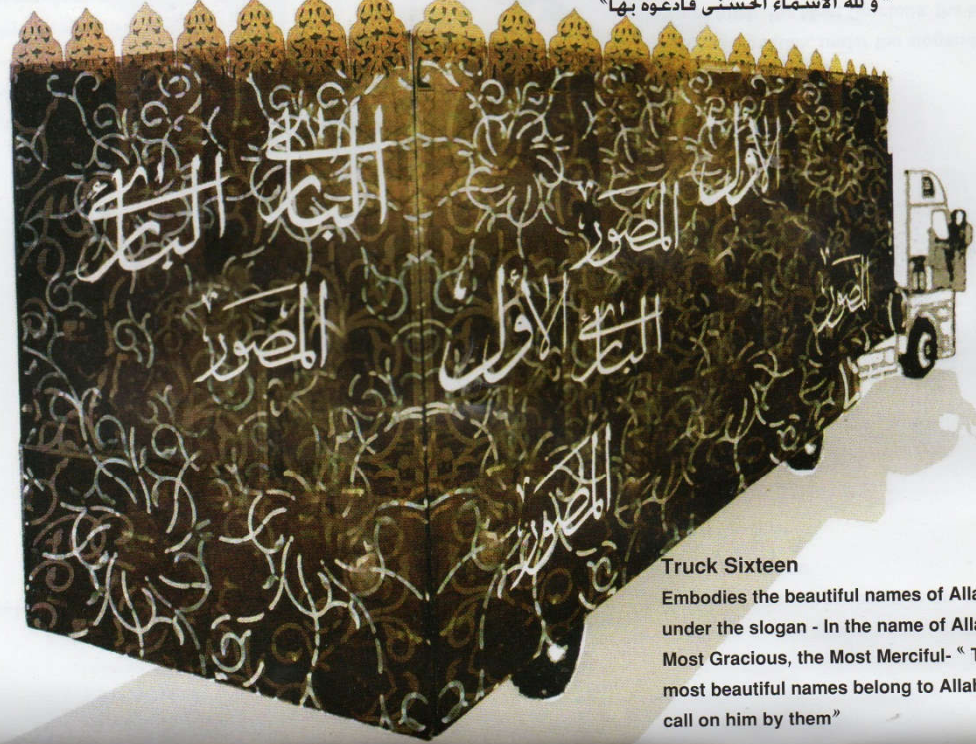 و لله الأسماء الحسنى فادعوه بها"
البارئ
البارئ
الأول
المصور
المصور
الأول
البارئ
المصور
المصور
Truck Sixteen
Embodies the beautiful names of Alla
under the slogan - In the name of Alla
Most Gracious, the Most Merciful- “ T
most beautiful names belong to Allah
call on him by them”